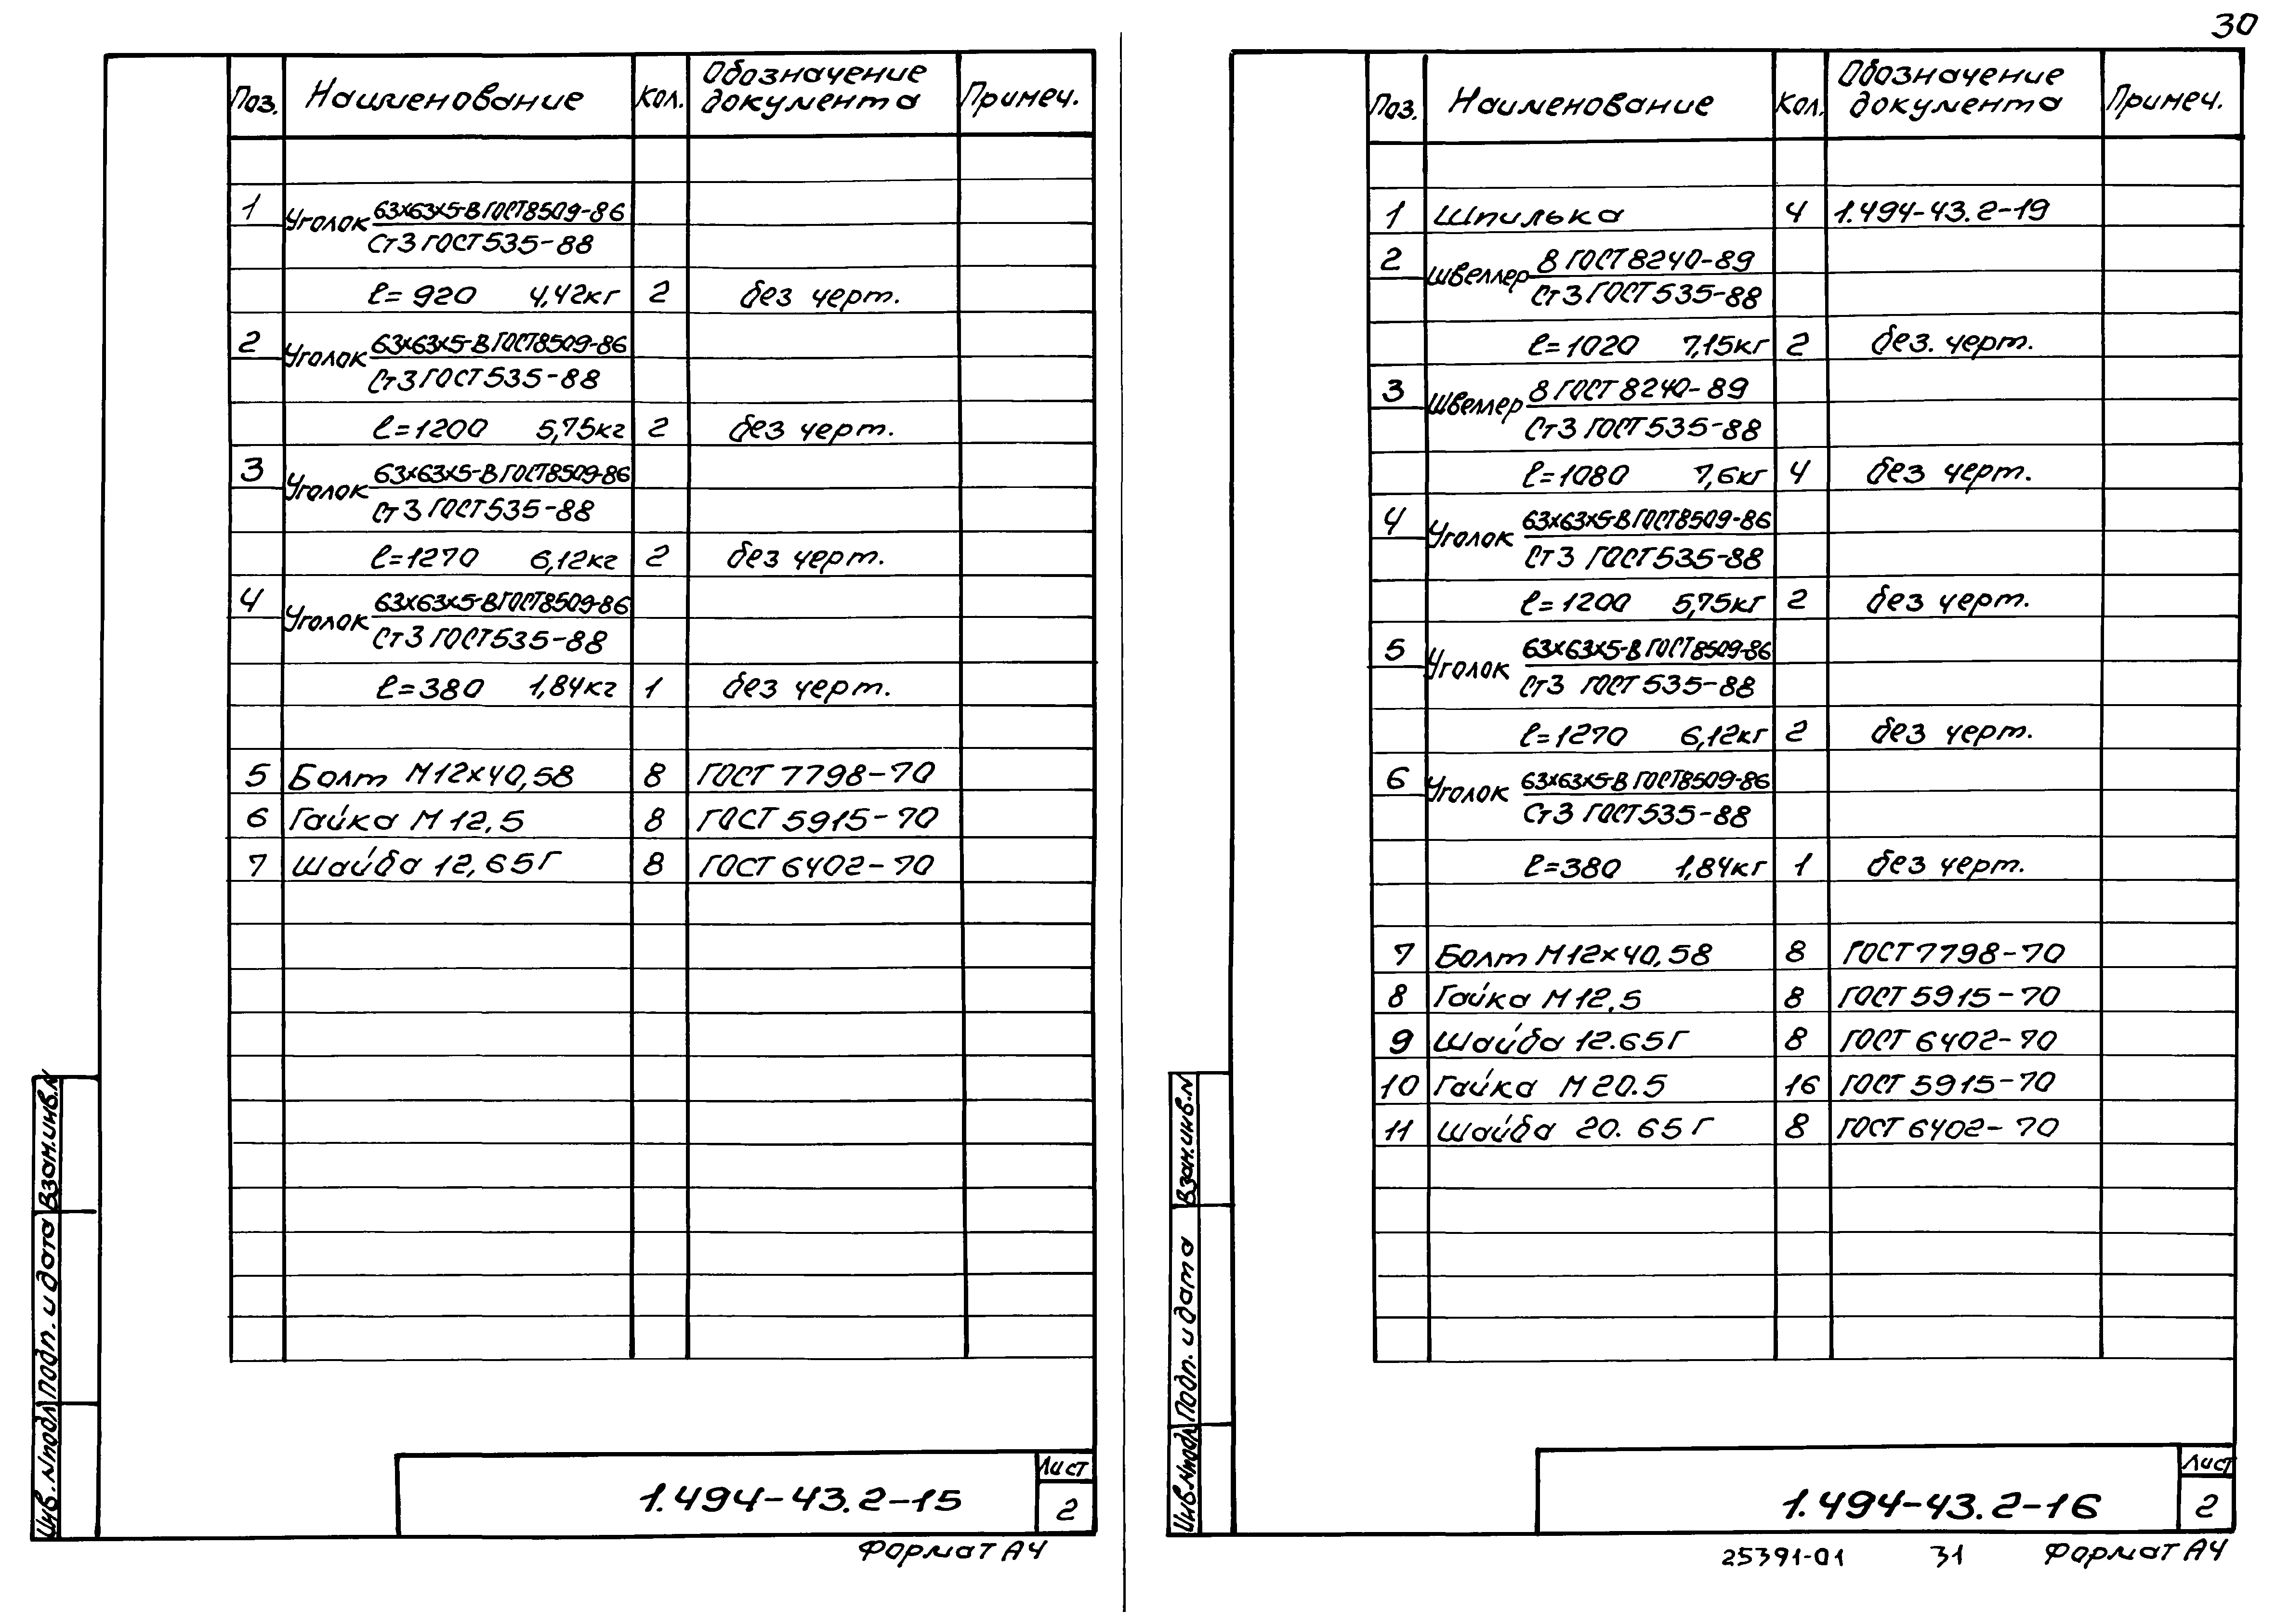 30
Поз. Наименование Кол. Обозначение документа Примеч.
1 Уголок 63×63×5-В ГОСТ 8509-86
Ст3 ГОСТ 535-88
ℓ=920 4,42кг 2 без черт.
2 Уголок 63×63×5-В ГОСТ 8509-86
Ст3 ГОСТ 535-88
ℓ=1200 5,75кг 2 без черт.
3 Уголок 63×63×5-В ГОСТ 8509-86
Ст3 ГОСТ 535-88
ℓ=1270 6,12кг 2 без черт.
4 Уголок 63×63×5-В ГОСТ 8509-86
Ст3 ГОСТ 535-88
ℓ=380 1,84кг 1 без черт.
5 Болт М12×40,58 8 ГОСТ 7798-70
6 Гайка М12,5 8 ГОСТ 5915-70
7 Шайба 12,65Г 8 ГОСТ 6402-70
Взам.инв.N
Подп. и дата
Инв.Nподл
1.494-43.2-15
Лист
2
Формат А4
Поз. Наименование Кол. Обозначение документа Примеч.
1 Шпилька 4 1.494-43.2-19
2 Швеллер 8 ГОСТ 8240-89
Ст3 ГОСТ 535-88
ℓ=1020 7,15кг 2 без. черт.
3 Швеллер 8 ГОСТ 8240-89
Ст3 ГОСТ 535-88
ℓ=1080 7,6кг 4 без черт.
4 Уголок 63×63×5-В ГОСТ 8509-86
Ст3 ГОСТ 535-88
ℓ=1200 5,75кг 2 без черт.
5 Уголок 63×63×5-В ГОСТ 8509-86
Ст3 ГОСТ 535-88
ℓ=1270 6,12кг 2 без черт.
6 Уголок 63×63×5-В ГОСТ 8509-86
Ст3 ГОСТ 535-88
ℓ=380 1,84кг 1 без черт.
7 Болт М12×40,58 8 ГОСТ 7798-70
8 Гайка М12,5 8 ГОСТ 5915-70
9 Шайба 12.65Г 8 ГОСТ 6402-70
10 Гайка М20.5 16 ГОСТ 5915-70
11 Шайба 20.65Г 8 ГОСТ 6402-70
Взам.инв.N
Подп. и дата
Инв.Nподл
1.494-43.2-16
Лист
2
25391-01 31 Формат А4